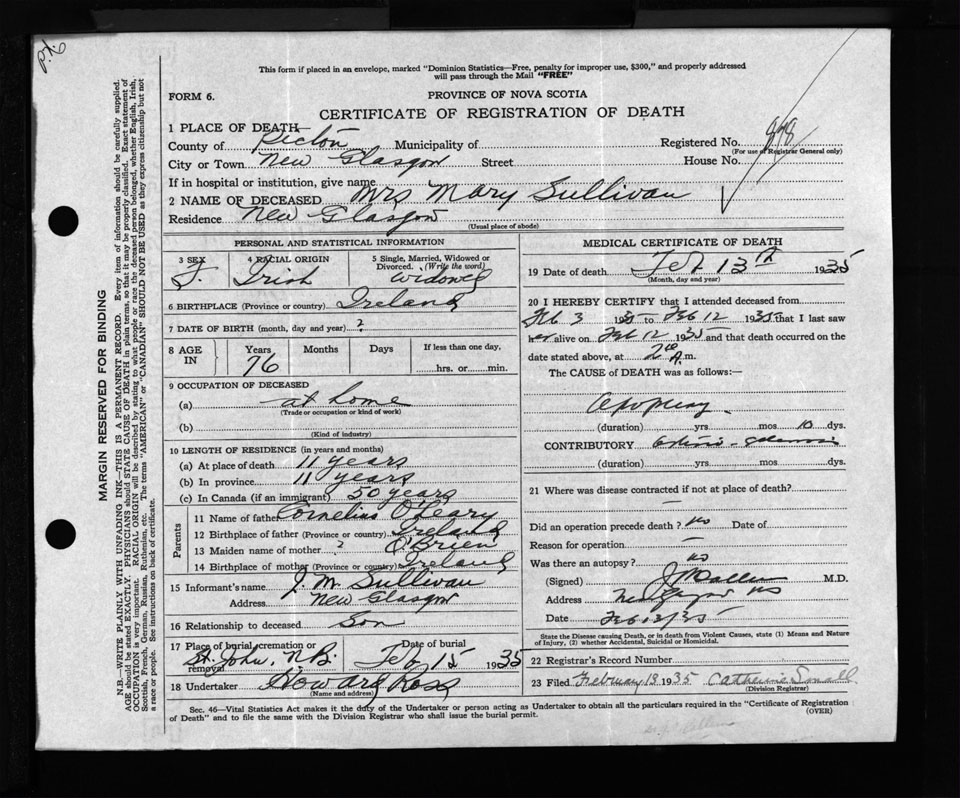 P.K. 6
This form if placed in an envelope, marked "Dominion Statistics—Free, penalty for improper use, $300," and properly addressed
will pass through the Mail "FREE"
FORM 6.
PROVINCE OF NOVA SCOTIA
CERTIFICATE OF REGISTRATION OF DEATH
1 PLACE OF DEATH
County of Pictou Municipality of
Registered No. 898
(For use of Registrar General only)
City or Town New Glasgow Street House No.
If in hospital or institution, give name
2 NAME OF DECEASED Mrs Mary Sullivan
Residence New Glasgow
(Usual place of abode)
MARGIN RESERVED FOR BINDING
N.B.—WRITE PLAINLY WITH UNFADING INK—THIS IS A PERMANENT RECORD. Every item of information should be carefully supplied.
AGE should be stated EXACTLY. PHYSICIANS should STATE CAUSE OF DEATH in plain terms, so that it may be properly classified. Exact statement of
OCCUPATION is very important. RACIAL ORIGIN will be described by stating to what people or race the deceased person belonged, whether English, Irish,
Scottish, French, German, Russian, Ruthenian, etc. The terms "AMERICAN" or "CANADIAN" SHOULD NOT BE USED as they express citizenship but not
a race or people. See instructions on back of certificate.
PERSONAL AND STATISTICAL INFORMATION
3 SEX
F.
4 RACIAL ORIGIN
Irish
5 Single, Married, Widowed or
Divorced. (Write the word)
Widowed
6 BIRTHPLACE (Province or country) Ireland
7 DATE OF BIRTH (month, day and year) ?
8 AGE
IN
Years
76
Months
Days
If less than one day.
hrs. or min.
9 OCCUPATION OF DECEASED
(a) at home
(Trade or occupation or kind of work)
(b)
(Kind of industry)
10 LENGTH OF RESIDENCE (in years and months)
(a) At place of death 11 years
(b) In province 11 years
(c) In Canada (if an immigrant) 50 years
Parents
11 Name of father Cornelius O'Leary
12 Birthplace of father (Province or country) Ireland
13 Maiden name of mother ? O'Brien
14 Birthplace of mother (Province or country) Ireland
15 Informant's name J. M. Sullivan
Address New Glasgow
16 Relationship to deceased Son
17 Place of burial, cremation or
removal St. John, N.B.
Date of burial
Feb 15 1935
18 Undertaker Howard Ross
(Name and address)
MEDICAL CERTIFICATE OF DEATH
19 Date of death Feb 13th 1935
(Month, day and year)
20 I HEREBY CERTIFY that I attended deceased from
Feb 3 1935 to Feb 12 1935 that I last saw
her alive on Feb 12 1935 and that death occurred on the
date stated above, at A.m.
The CAUSE of DEATH was as follows:—
Apoplexy
(duration) yrs mos 10 dys.
CONTRIBUTORY
(duration) yrs. mos. dys.
21 Where was disease contracted if not at place of death?
—
Did an operation precede death? no Date of
Reason for operation —
Was there an autopsy? no
(Signed) M.D.
Address New Glasgow NS
Date Feb 13/35
State the Disease causing Death, or in death from Violent Causes, state (1) Means and Nature
of Injury, (2) whether Accidental, Suicidal or Homicidal.
22 Registrar's Record Number
23 Filed February 13 1935 Catherine
(Division Registrar)
Sec. 46—Vital Statistics Act makes it the duty of the Undertaker or person acting as Undertaker to obtain all the particulars required in the "Certificate of Registration
of Death" and to file the same with the Division Registrar who shall issue the burial permit.
(OVER)